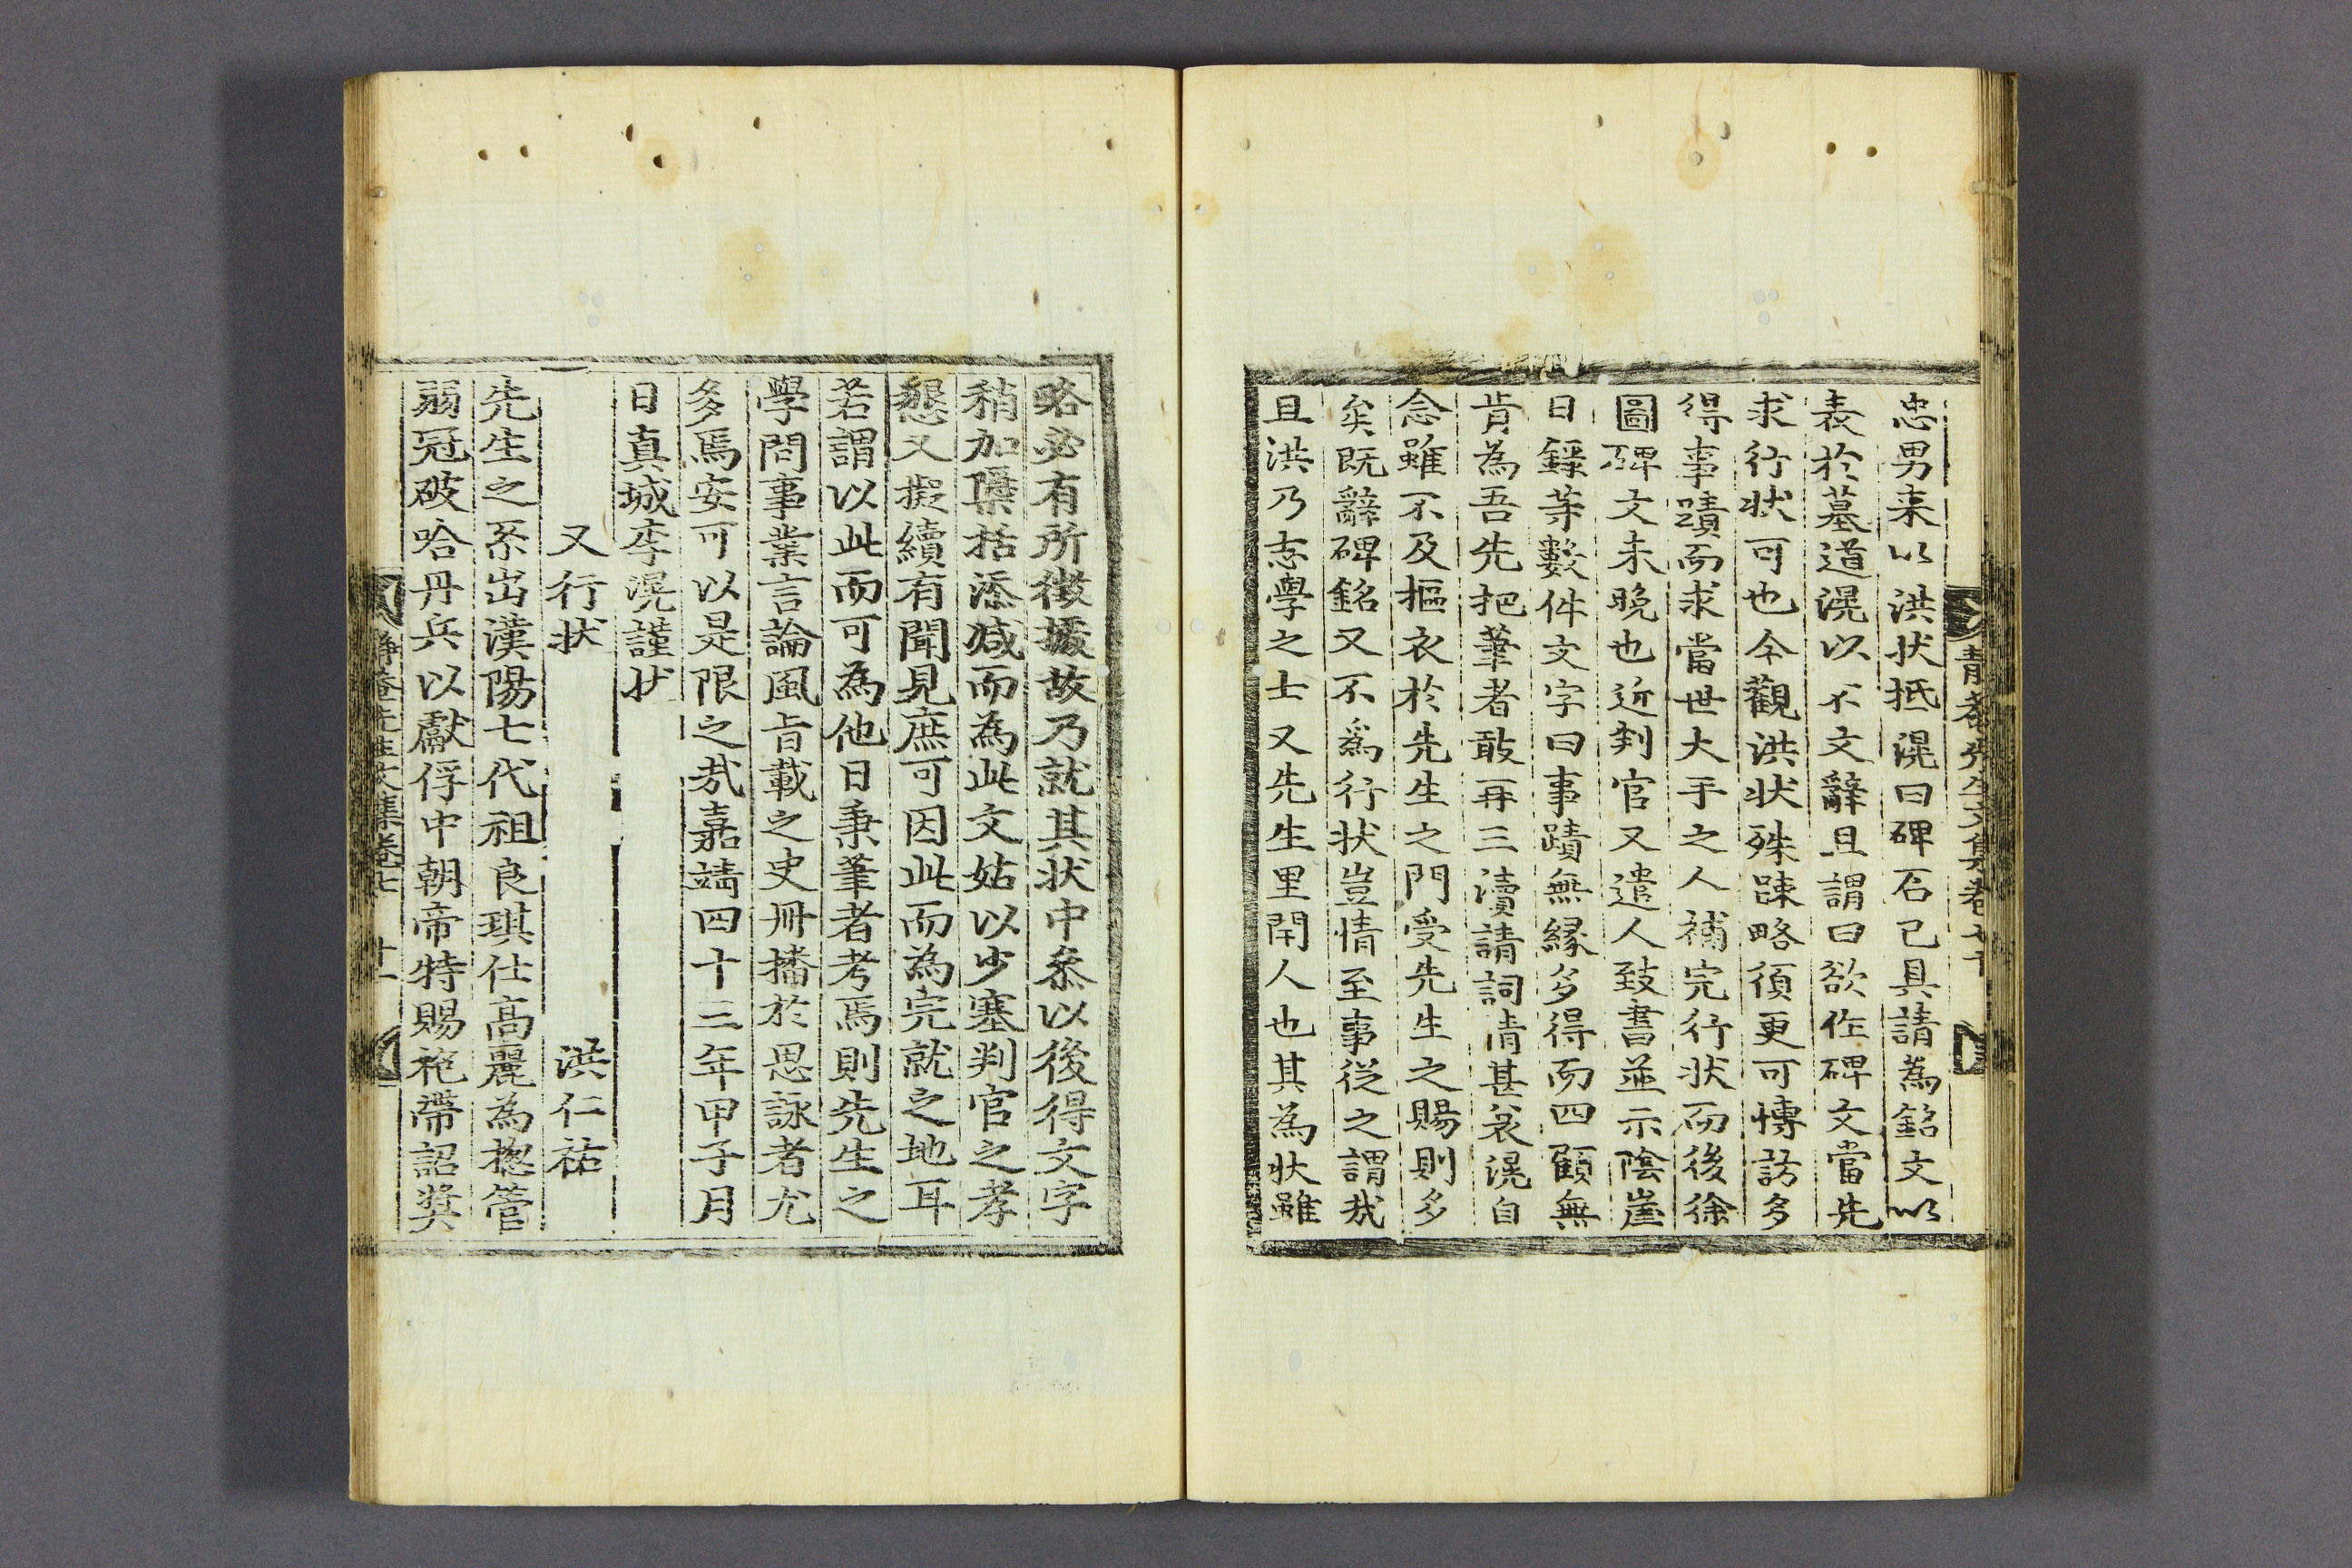 忠男来以洪状抵滉曰碑石已具請為銘文以
表於墓道滉以不文辭且謂曰欲作碑文當先
求行状可也今觀洪状殊踈略須更可博訪多
得事蹟而求當世大手之人補完行状而後徐
圖碑文未晚也近判官又遣人致書並示陰崖
日錄等數件文字曰事蹟無縁多得而四顧無
肯為吾先把筆者敢再三瀆請詞情甚哀滉自
念雖不及摳衣於先生之門受先生之賜則多
矣既辭碑銘又不爲行状豈情至事從之謂㢤
且洪乃志學之士又先生里閈人也其為状雖
略必有所徵援故乃就其状中叅以後得文字
稍加檃括添减而為此文姑以少塞判官之孝
懇又擬續有聞見庶可因此而為完就之地耳
若謂以此而可為他日秉筆者考焉則先生之
學問事業言論風旨載之史冊播於思詠者尤
多焉安可以是限之㢤嘉靖四十三年甲子月
日真城李滉謹状
又行状 洪仁祐
先生之系出漢陽七代祖良琪仕高麗為摠管
弱冠破哈丹兵以獻俘中朝帝特賜袍帶詔奬
靜菴先生文集卷七 十一